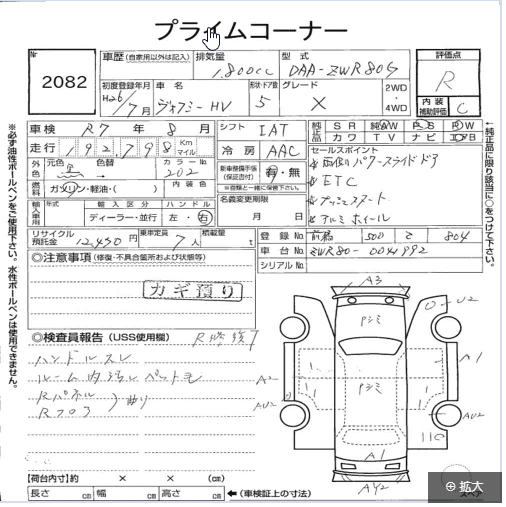 プライムコーナー
No 2082
車歴 (自家用以外は記入) 排気量 1,800cc 型式 DAA-ZWR80G 評価点 R
初度登録年月 H26/7月 車名 ヴォクシーHV 形状・ドア数 5 グレード X 2WD・4WD 内装補助評価 C
車検 R7年8月 シフト IAT 純正品 SR 純AW PS PW
走行 192798 Km マイル 冷房 AAC 革 カワ TV ナビ エアB
外色 元色 黒 色替 カラーNo. 202 新車整備手帳(保証書付) 有・無 セールスポイント
燃料 ガソリン・軽油・( ) 内装色 ※自賠と一緒に保管下さい。
輸入車用 年式 輸入区分 ディーラー・並行 ハンドル 左・右 名義変更期限 月 日
＊両側パワースライドドア
＊ETC
＊プッシュスタート
＊アルミホイール
リサイクル預託金 12,430円 乗車定員 7人 積載量 t 登録No. 前橋 500 さ 804
車台No. ZWR80-0041992
シリアルNo.
◎注意事項 (修復・不具合箇所および状態等)
カギ預り
◎検査員報告 (USS使用欄) R修復了
ハンドルスレ
ルーム内汚レ ペット毛
Rパネル
Rフロア 曲り
A3
U2
Pシミ
A1
A2
Pシミ
AU2
AU2
A1
AY2
【荷台内寸】約 × × (cm)
長さ cm 幅 cm 高さ cm ←(車検証上の寸法)
スペア
拡大
※必ず油性ボールペンをご使用下さい。水性ボールペンは使用できません。
←純正品に限り該当に○をつけて下さい。